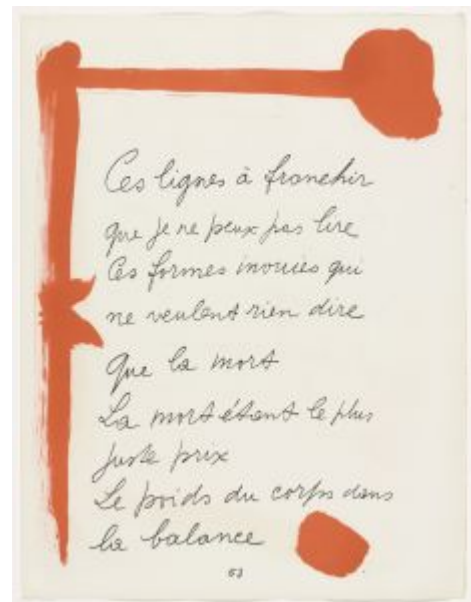 Ces lignes à franchir
que je ne peux pas lire
Ces formes inouies qui
ne veulent rien dire
Que la mort
La mort étant le plus
juste prix
Le poids du corps dans
la balance
63